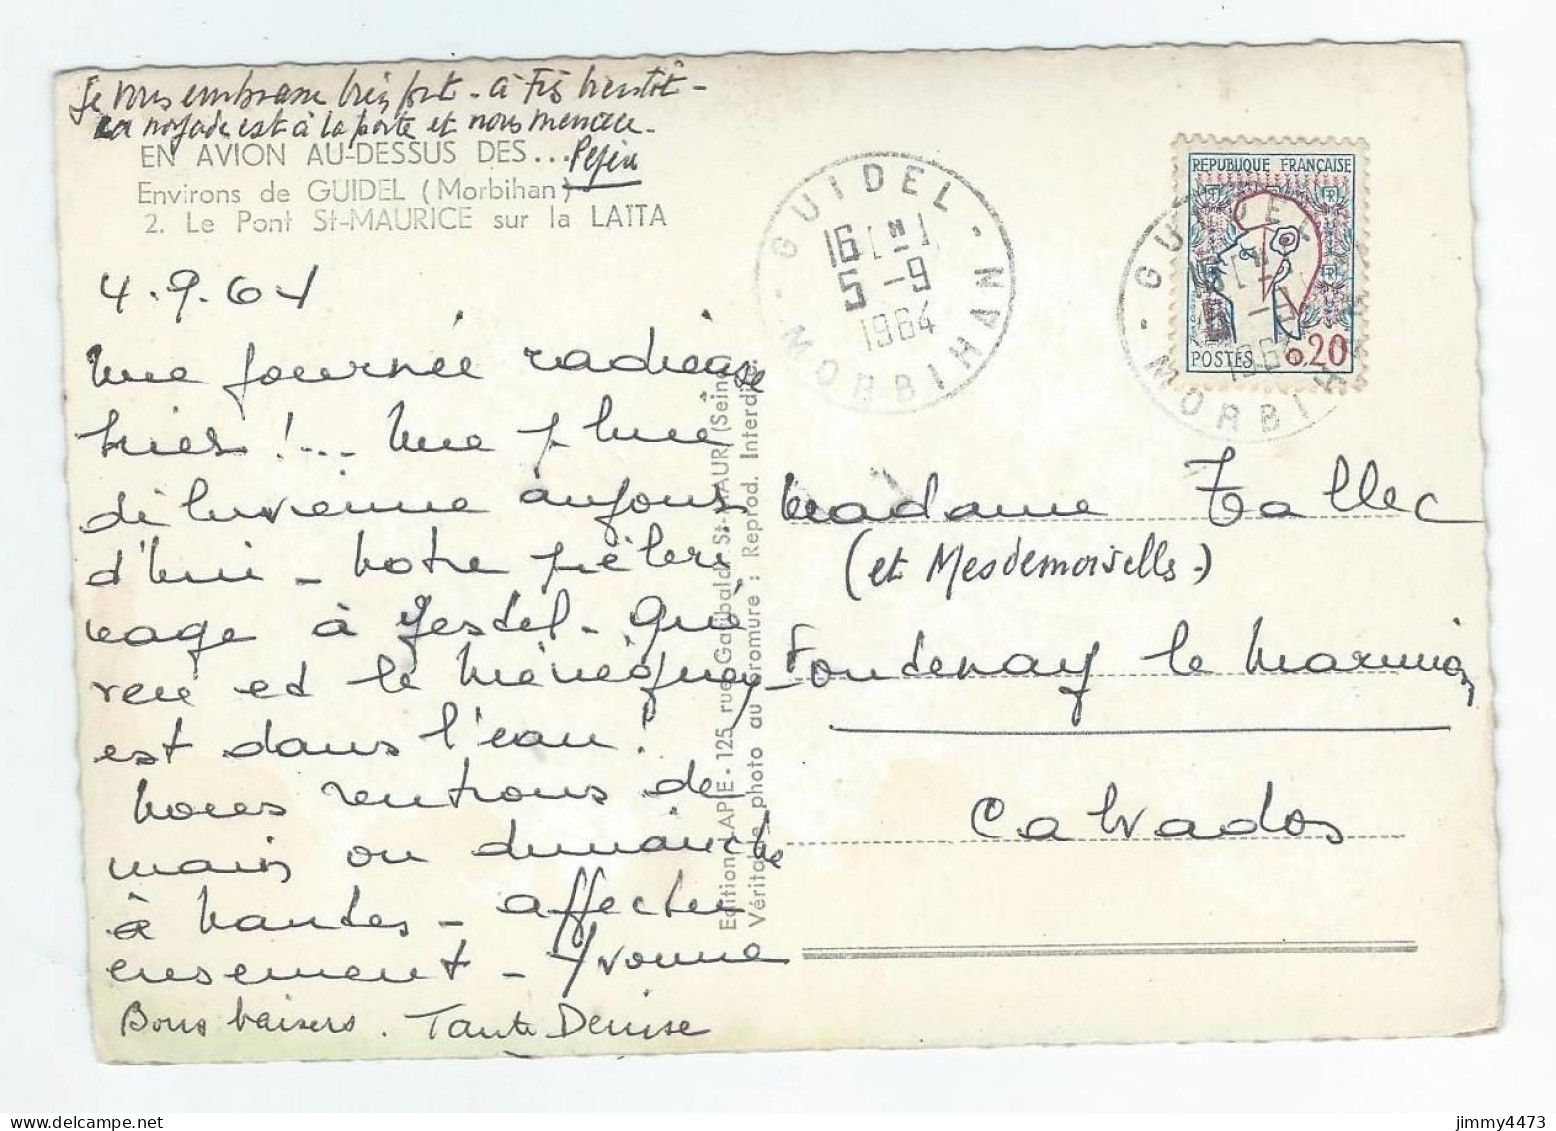 Je vous embrasse très fort - à très bientôt -
La noyade est à la porte et nous menace.
Pépin
EN AVION AU-DESSUS DES...
Environs de GUIDEL (Morbihan)
2. Le Pont St-MAURICE sur la LAÏTA
4.9.64
Une journée radieuse
hier !... Une pluie
diluvienne aujour
d'hui - Notre pèleri
nage à Gestel - Qué
ven et le Ménéguen
est dans l'eau !
Nous rentrons de
main ou dimanche
à Nantes - affectu
eusement - Yvonne
Bons baisers. Tante Denise
Edition LAPIE - 125 rue Garibaldi St-MAUR (Seine)
Véritable photo au bromure : Reprod. Interdite
GUIDEL
16 H
5 -9
1964
MORBIHAN
REPUBLIQUE FRANÇAISE
POSTES 0,20
GUIDEL
5 -9
1964
MORBIH
Madame Tallec
(et Mesdemoiselles -)
Fontenay le Marmion
Calvados
jimmy4473